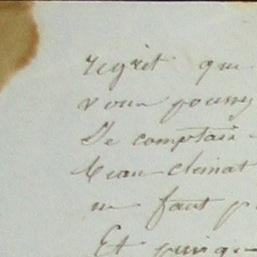 regret que
vous pouss
Je comptais
beau climat
ne faut p
Et puisque